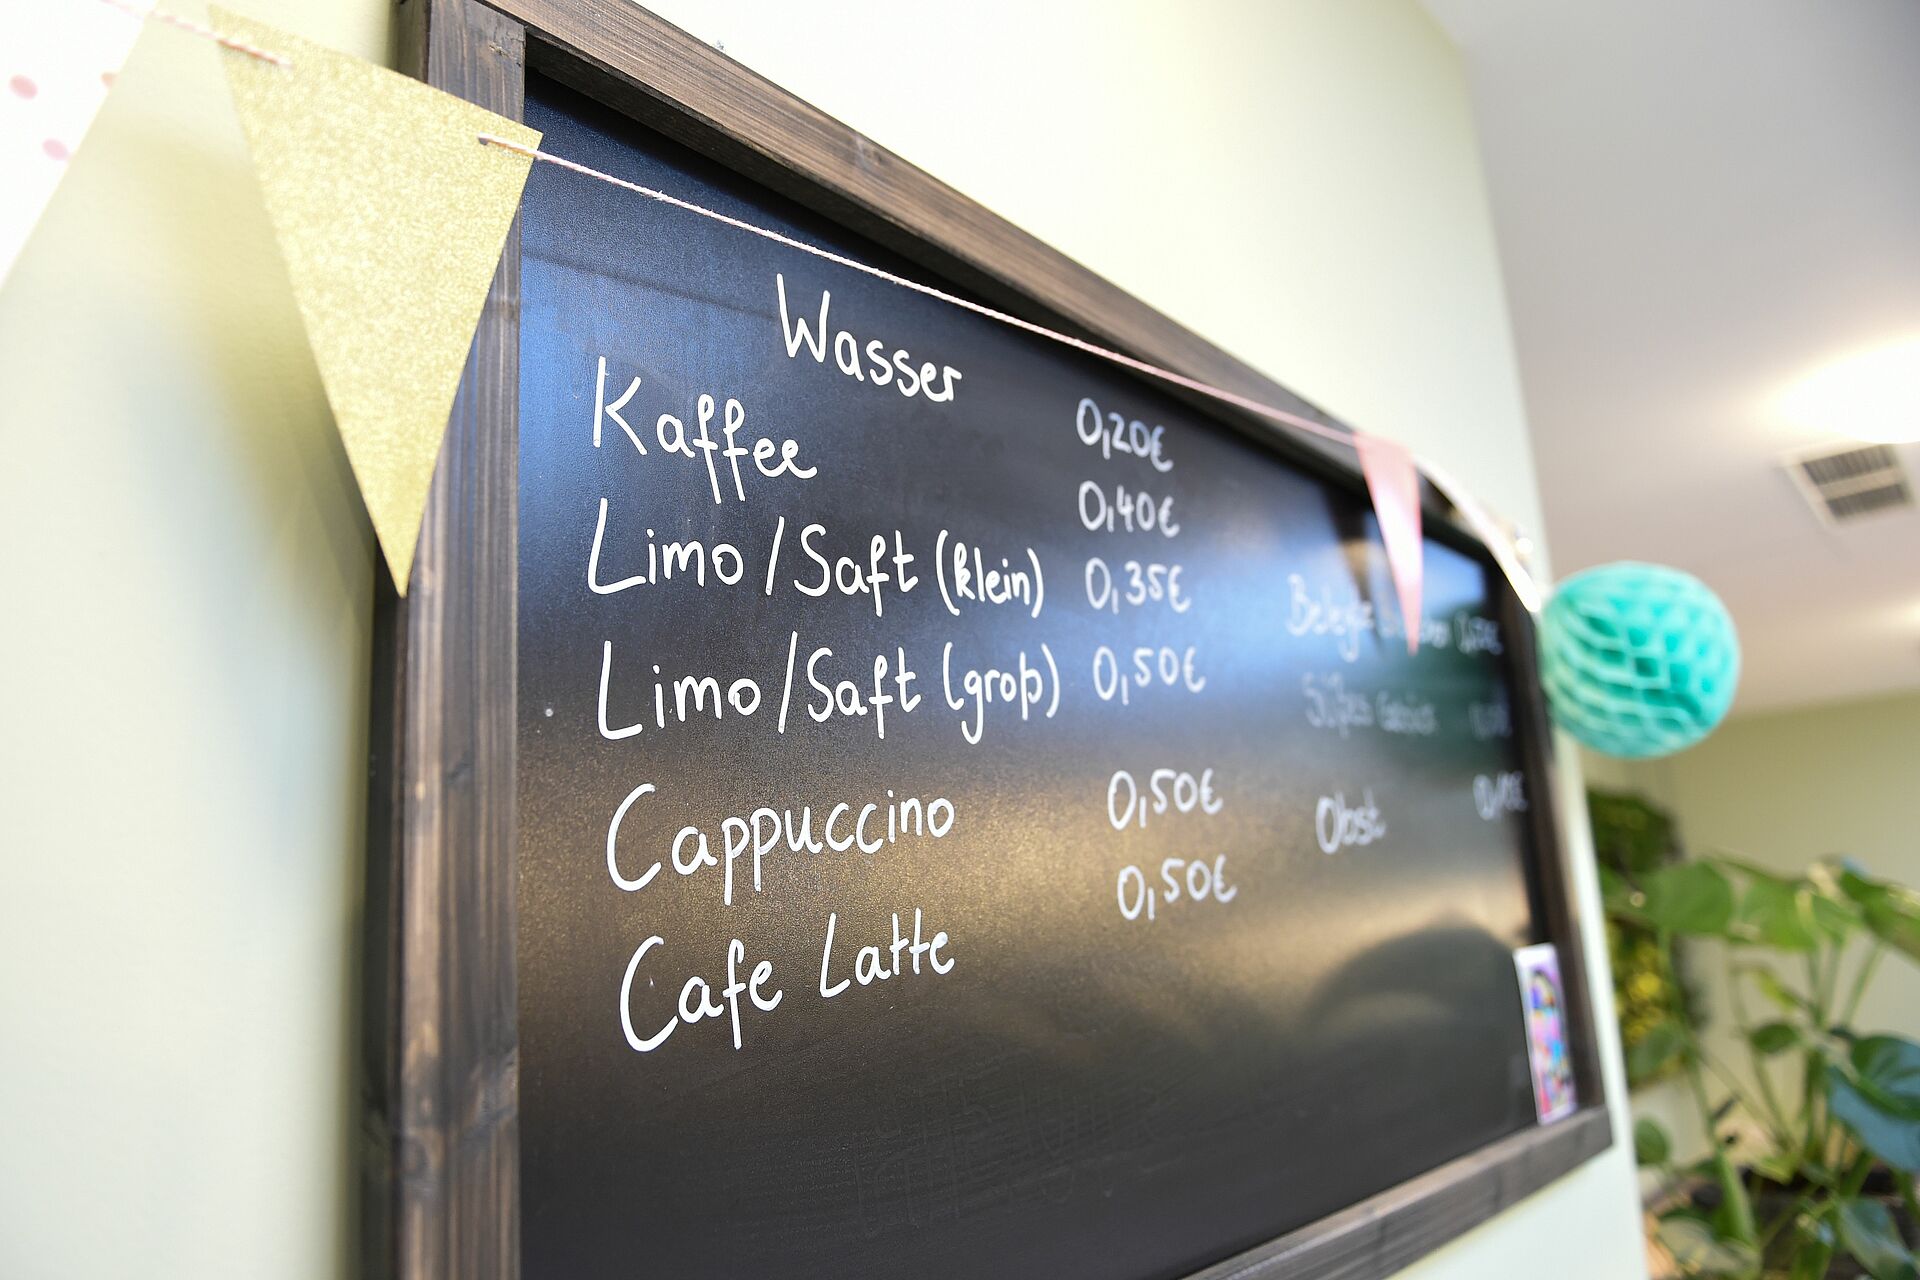 Wasser 0,20€
Kaffee 0,40€
Limo/Saft (klein) 0,35€
Limo/Saft (groß) 0,50€
Cappuccino 0,50€
Cafe Latte 0,50€
Süßes
Obst